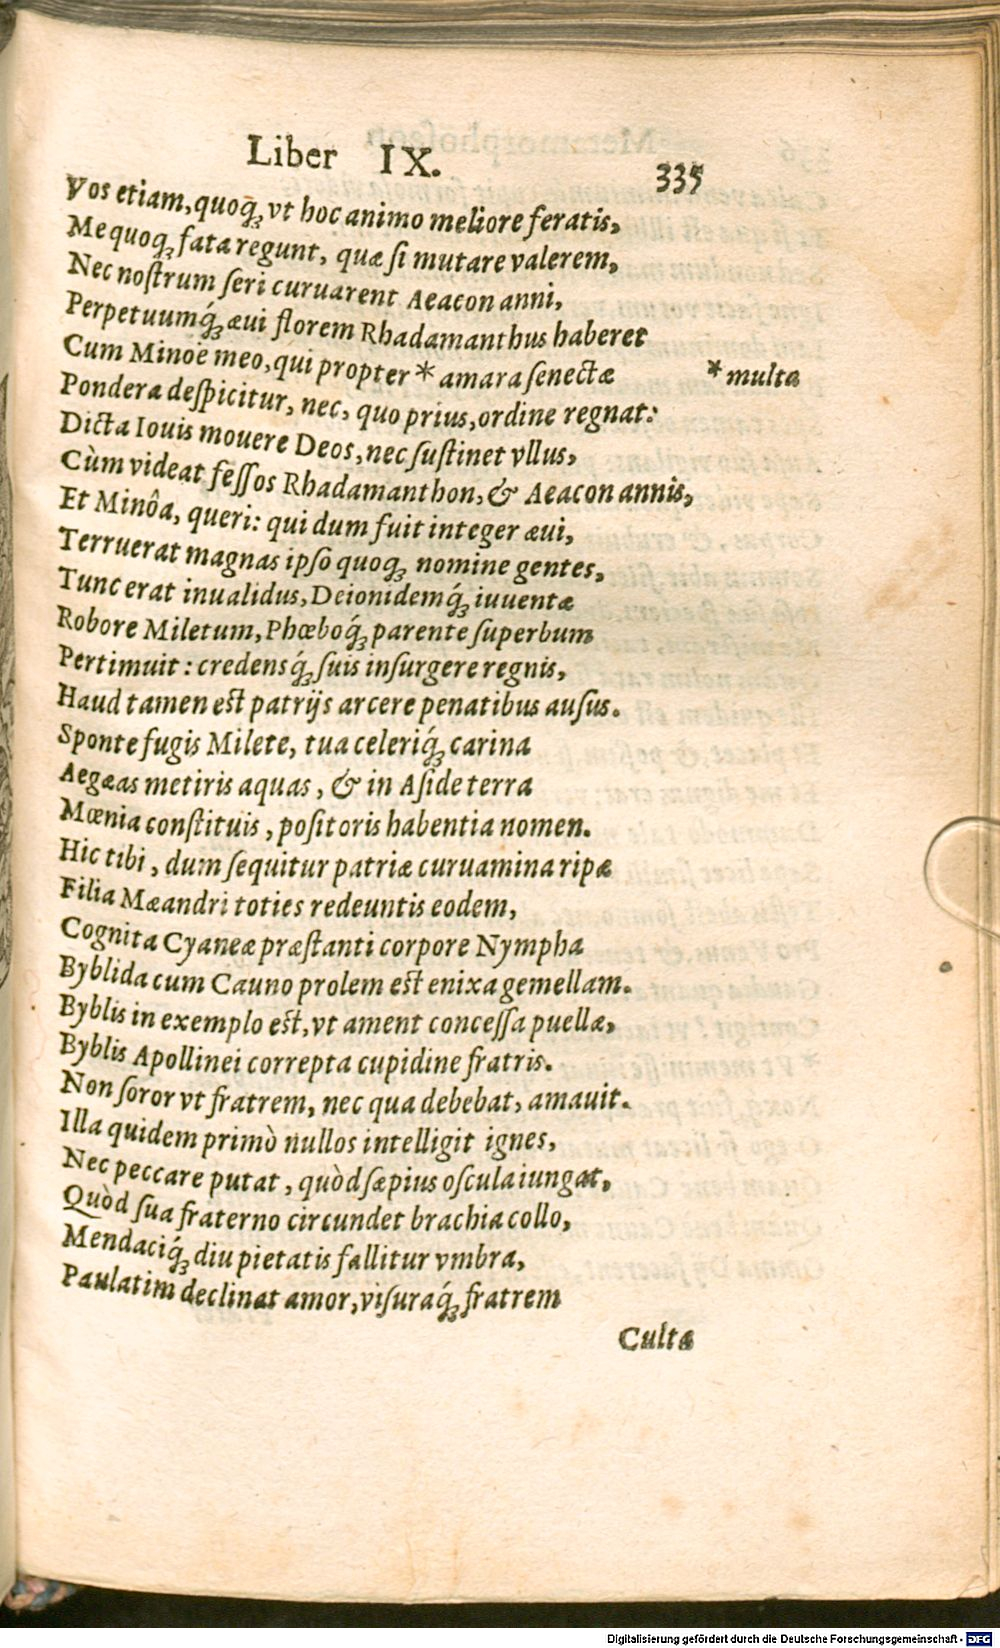 Liber IX. 335
Vos etiam, quoq́ꝫ vt hoc animo meliore feratis,
Me quoqꝫ fata regunt, quæ si mutare valerem,
Nec nostrum seri curuarent Aeacon anni,
Perpetuumq́ꝫ æui florem Rhadamanthus haberet
Cum Minoë meo, qui propter * amara senectæ * multa
Pondera despicitur, nec, quo prius, ordine regnat:
Dicta Iouis mouere Deos, nec sustinet vllus,
Cùm videat fessos Rhadamanthon, & Aeacon annis,
Et Minôa, queri: qui dum fuit integer æui,
Terruerat magnas ipso quoqꝫ nomine gentes,
Tunc erat inualidus, Deionidemq́ꝫ iuuentæ
Robore Miletum, Phœboq́ꝫ parente superbum
Pertimuit: credensq́ꝫ suis insurgere regnis,
Haud tamen est patrijs arcere penatibus ausus.
Sponte fugis Milete, tua celeriq́ꝫ carina
Aegæas metiris aquas, & in Aside terra
Mœnia constituis, positoris habentia nomen.
Hic tibi, dum sequitur patriæ curuamina ripæ
Filia Mæandri toties redeuntis eodem,
Cognita Cyaneæ præstanti corpore Nympha
Byblida cum Cauno prolem est enixa gemellam.
Byblis in exemplo est, vt ament concessa puellæ,
Byblis Apollinei correpta cupidine fratris.
Non soror vt fratrem, nec qua debebat, amauit.
Illa quidem primò nullos intelligit ignes,
Nec peccare putat, quòd sæpius oscula iungat,
Quòd sua fraterno circundet brachia collo,
Mendaciq́ꝫ diu pietatis fallitur vmbra,
Paulatim declinat amor, visuraq́ꝫ fratrem
Culta
Digitalisierung gefördert durch die Deutsche Forschungsgemeinschaft - DFG